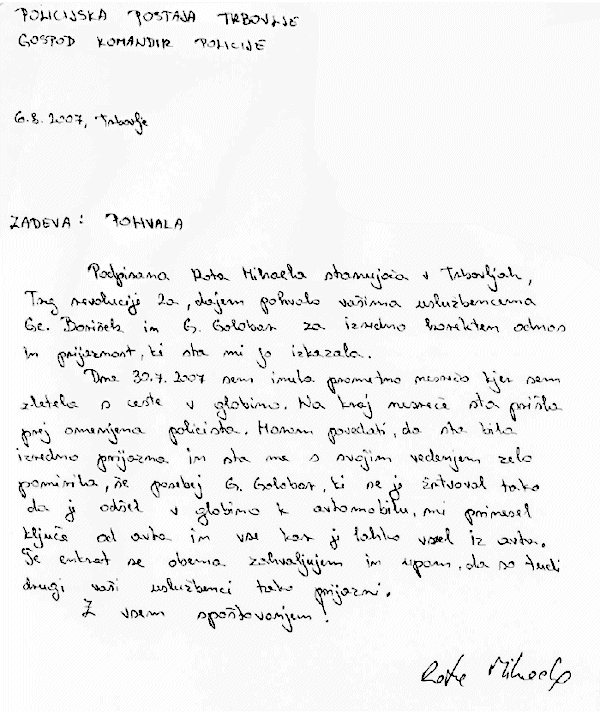 POLICIJSKA POSTAJA TRBOVLJE
GOSPOD KOMANDIR POLICIJE
6.8.2007, Trbovlje
ZADEVA: POHVALA
Podpisana Rota Mihaela stanujoča v Trbovljah,
Trg revolucije 2a, dajem pohvalo vašima uslužbencema
G. Borišek in G. Golobar za izredno korekten odnos
in prijaznost, ki sta mi jo izkazala.
Dne 30.7.2007 sem imela prometno nesrečo kjer sem
zletela s ceste v globino. Na kraj nesreče sta prišla
prej omenjena policista. Moram povedati, da sta bila
izredno prijazna in sta me s svojim vedenjem zelo
pomirila, še posebej G. Golobar, ki se je žrtvoval tako
da je odšel v globino k avtomobilu, mi prinesel
ključe od avta in vse kar je lahko vzel iz avta.
Še enkrat se obema zahvaljujem in upam, da so tudi
drugi vaši uslužbenci tako prijazni.
Z vsem spoštovanjem!
Rota Mihaela